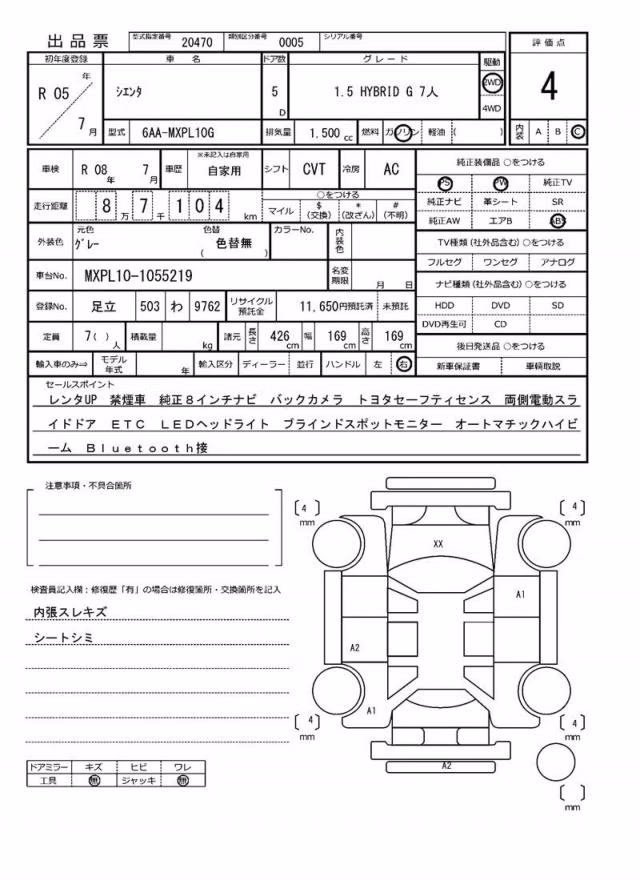 出品票 型式指定番号 20470 類別区分番号 0005 シリアル番号
評価点
4
内装 A B C
初年度登録 車名 ドア数 グレード 駆動
R 05 年 7 月
シエンタ 5 D 1.5 HYBRID G 7人 2WD
4WD
型式 6AA-MXPL10G 排気量 1,500 cc 燃料 ガソリン 軽油 ( )
車検 R 08 年 7 月 車歴 ※未記入は自家用 自家用 シフト CVT 冷房 AC
純正装備品 ○をつける
PS PW 純正TV
純正ナビ 革シート SR
純正AW エアB ABS
走行距離 8 万 7 千 1 0 4 km
○をつける
マイル $(交換) *(改ざん) #(不明)
外装色 元色 グレー 色替 色替無 ( ) カラーNo. 内装色
TV種類(社外品含む)○をつける
フルセグ ワンセグ アナログ
車台No. MXPL10-1055219 名変期限 月 日
ナビ種類(社外品含む)○をつける
HDD DVD SD
DVD再生可 CD
登録No. 足立 503 わ 9762 リサイクル預託金 11,650円預託済 未預託
定員 7( )人 積載量 kg 諸元 長さ 426 cm 幅 169 cm 高さ 169 cm
後日発送品 ○をつける
新車保証書 車輌取説
輸入車のみ⇒ モデル年式 年 輸入区分 ディーラー 並行 ハンドル 左 右
セールスポイント
レンタUP 禁煙車 純正8インチナビ バックカメラ トヨタセーフティセンス 両側電動スラ
イドドア ETC LEDヘッドライト ブラインドスポットモニター オートマチックハイビ
ーム Bluetooth接
注意事項・不具合箇所
検査員記入欄:修復歴「有」の場合は修復箇所・交換箇所を記入
内張スレキズ
シートシミ
[ 4 ] mm
[ 4 ] mm
XX
A1
A2
A1
[ 4 ] mm
[ 4 ] mm
A2
[ ] mm
ドアミラー キズ ヒビ ワレ
工具 無 ジャッキ 無